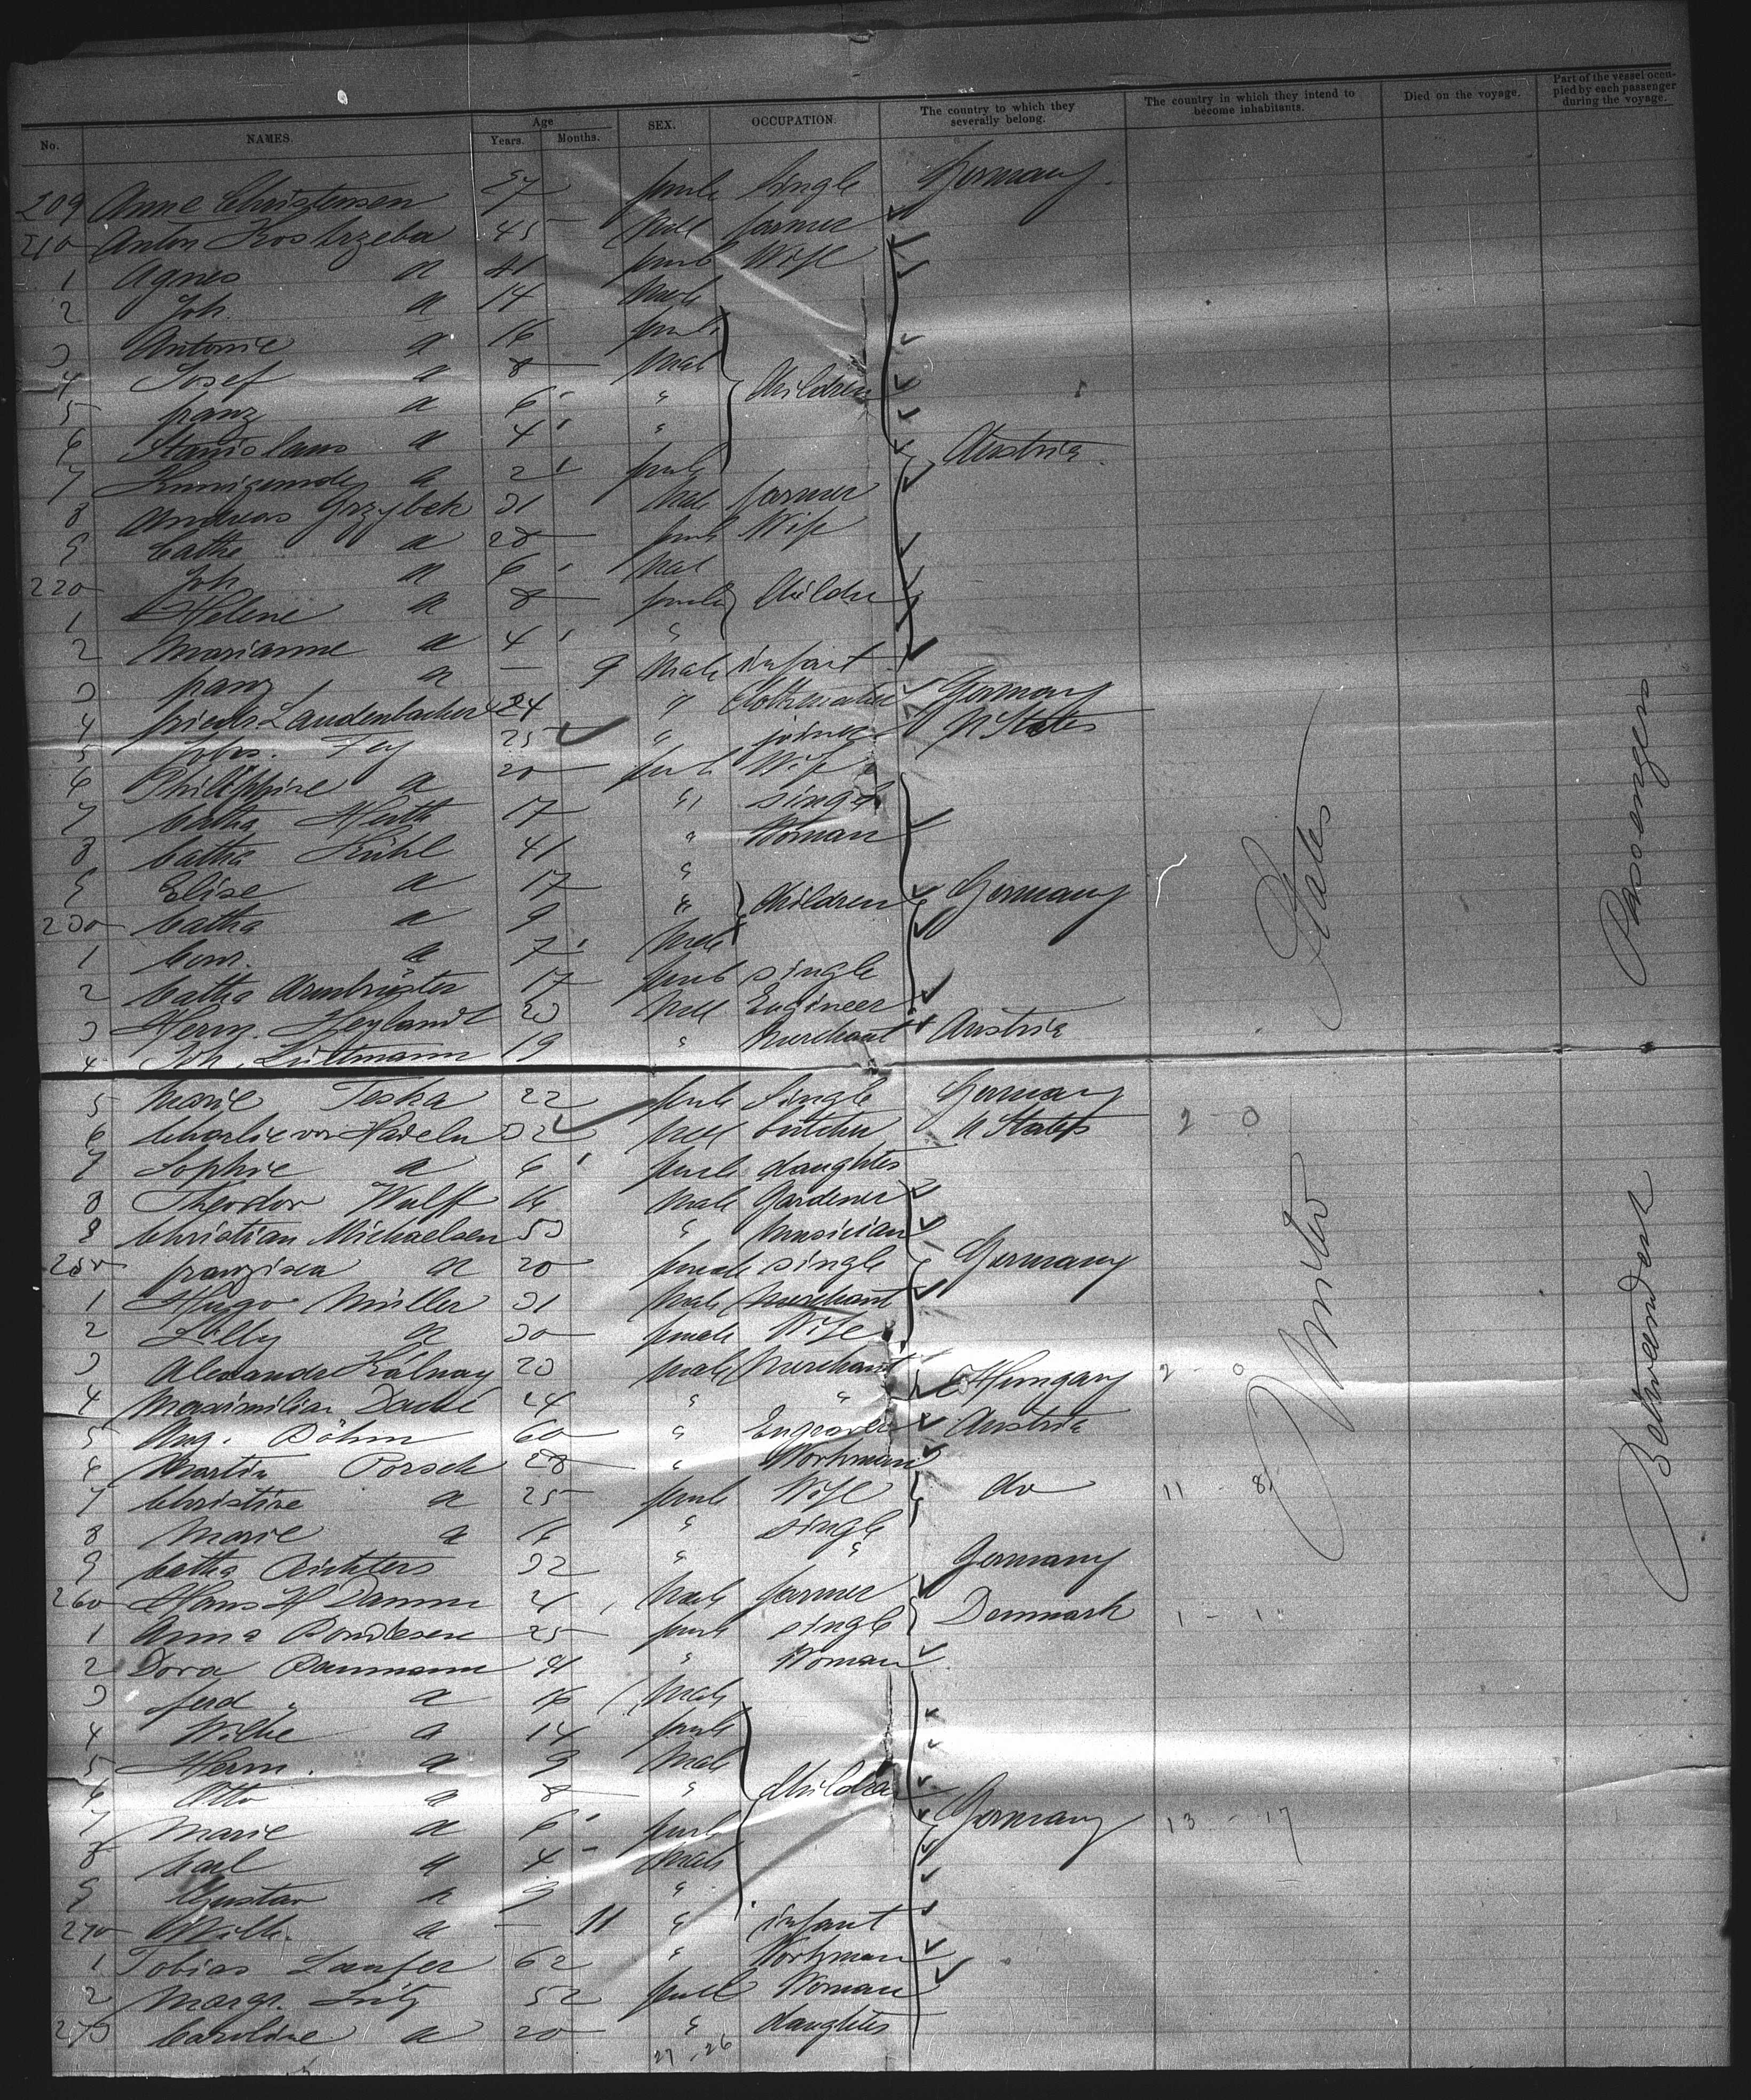 No. NAMES. Age Years. Months. SEX. OCCUPATION. The country to which they severally belong. The country in which they intend to become inhabitants. Died on the voyage. Part of the vessel occupied by each passenger during the voyage.
209 Anne Christensen 27 female Single Germany.
210 Anton Kostrzeba 45 Male farmer
1 Agnes a 41 female Wife
2 Joh. a 14 Male
3 Antonie a 16 female
4 Josef a 8 Male Children
5 franz a 6 "
6 Stanislaus a 4 " Austria
7 Kunigunde a 2 female
8 Andreas Grzybek 31 Male farmer
9 Cathe a 28 female Wife
220 Joh. a 6 Male
1 Helene a 8 female Children
2 Marianne a 4 "
3 franz a — 9 Male infant
4 friedr Laudenbacher 24 " Germany
5 Johs. Fey 25 " joiner U States
6 Philippine a 20 female Wife
7 Catha 17 " single
8 Catha Kühl 41 " Woman
9 Elise a 17 "
230 Catha a 9 " Children Germany
1 Conr. a 7 Male
2 Catha Armbrüster 17 female single
3 Herm. Heylandt 23 Male Engineer
4 Joh. Lüttmann 19 " Merchant Austria
5 Marie Teska 22 female Single Germany
6 Charlie von Hadeln 32 Male butcher U States 2 - 0
7 Sophie a 6 female daughter
8 Theodor Wulff 16 Male Gardener
9 Christian Michaelsen 53 " Musician
250 franziska a 20 female single Germany
1 Hugo Müller 31 Male Merchant
2 Lilly a 30 female Wife
3 Alexander Kálnay 23 Male Merchant Hungary 2 - 0
4 Maximilian 24 " "
5 Aug. Böhm 60 " Engraver Austria
6 Martin Porsch 28 " Workman
7 Christine a 25 female Wife do 11 - 8
8 Marie a 16 " single
9 Catha Richters 32 " " Germany
260 Hans H Damm 21 Male farmer
1 Anna Bondesen 25 female single Denmark 1 - 1
2 Dora Baumann 41 " Woman
3 ferd. a 16 Male
4 Wilhe a 14 female
5 Herm. a 9 Male
6 Otto a 8 " Children
7 Marie a 6 female Germany 13 - 17
8 Carl a 4 Male
9 Gustav a 3 "
270 Wilh. a — 11 " infant
1 Tobias Laufer 62 " Workman
2 Margr. 52 female Woman
273 Caroline a 20 " daughter
27 . 26
United States
Betweendeck Passengers